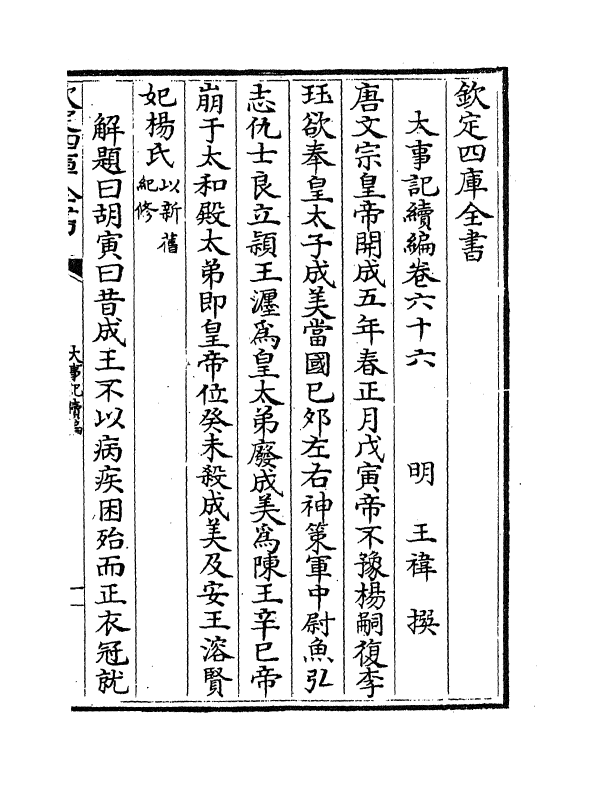 欽定四庫全書
大事記續編卷六十六　　明　王禕　撰
唐文宗皇帝開成五年春正月戊寅帝不豫楊嗣復李
珏欲奉皇太子成美當國已夘左右神策軍中尉魚弘
志仇士良立潁王瀍為皇太弟廢成美為陳王辛巳帝
崩于太和殿太弟即皇帝位癸未殺成美及安王溶賢
妃楊氏以新舊紀修
解題曰胡寅曰昔成王不以病疾困殆而正衣冠就
欽定四庫全書
大事記續編
一